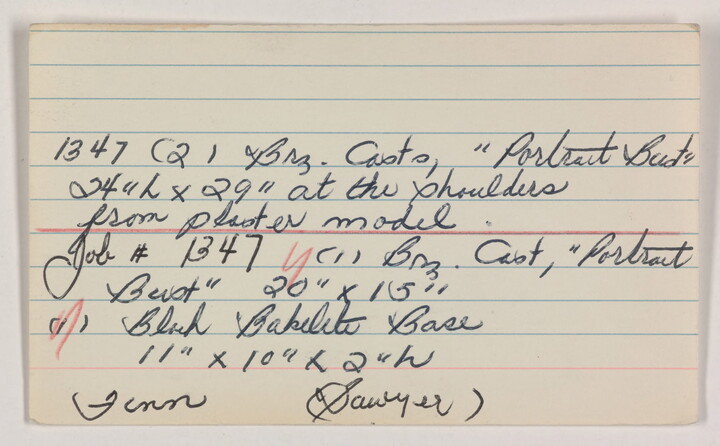 1347 (2) Brz. Casts, "Portrait Bust"
24"h x 29" at the shoulders
from plaster model.
Job # 1347 (1) Brz. Cast, "Portrait
Bust" 20" x 15"
(1) Black Bakelite Base
11" x 10" x 2"h
Finn (Sawyer)